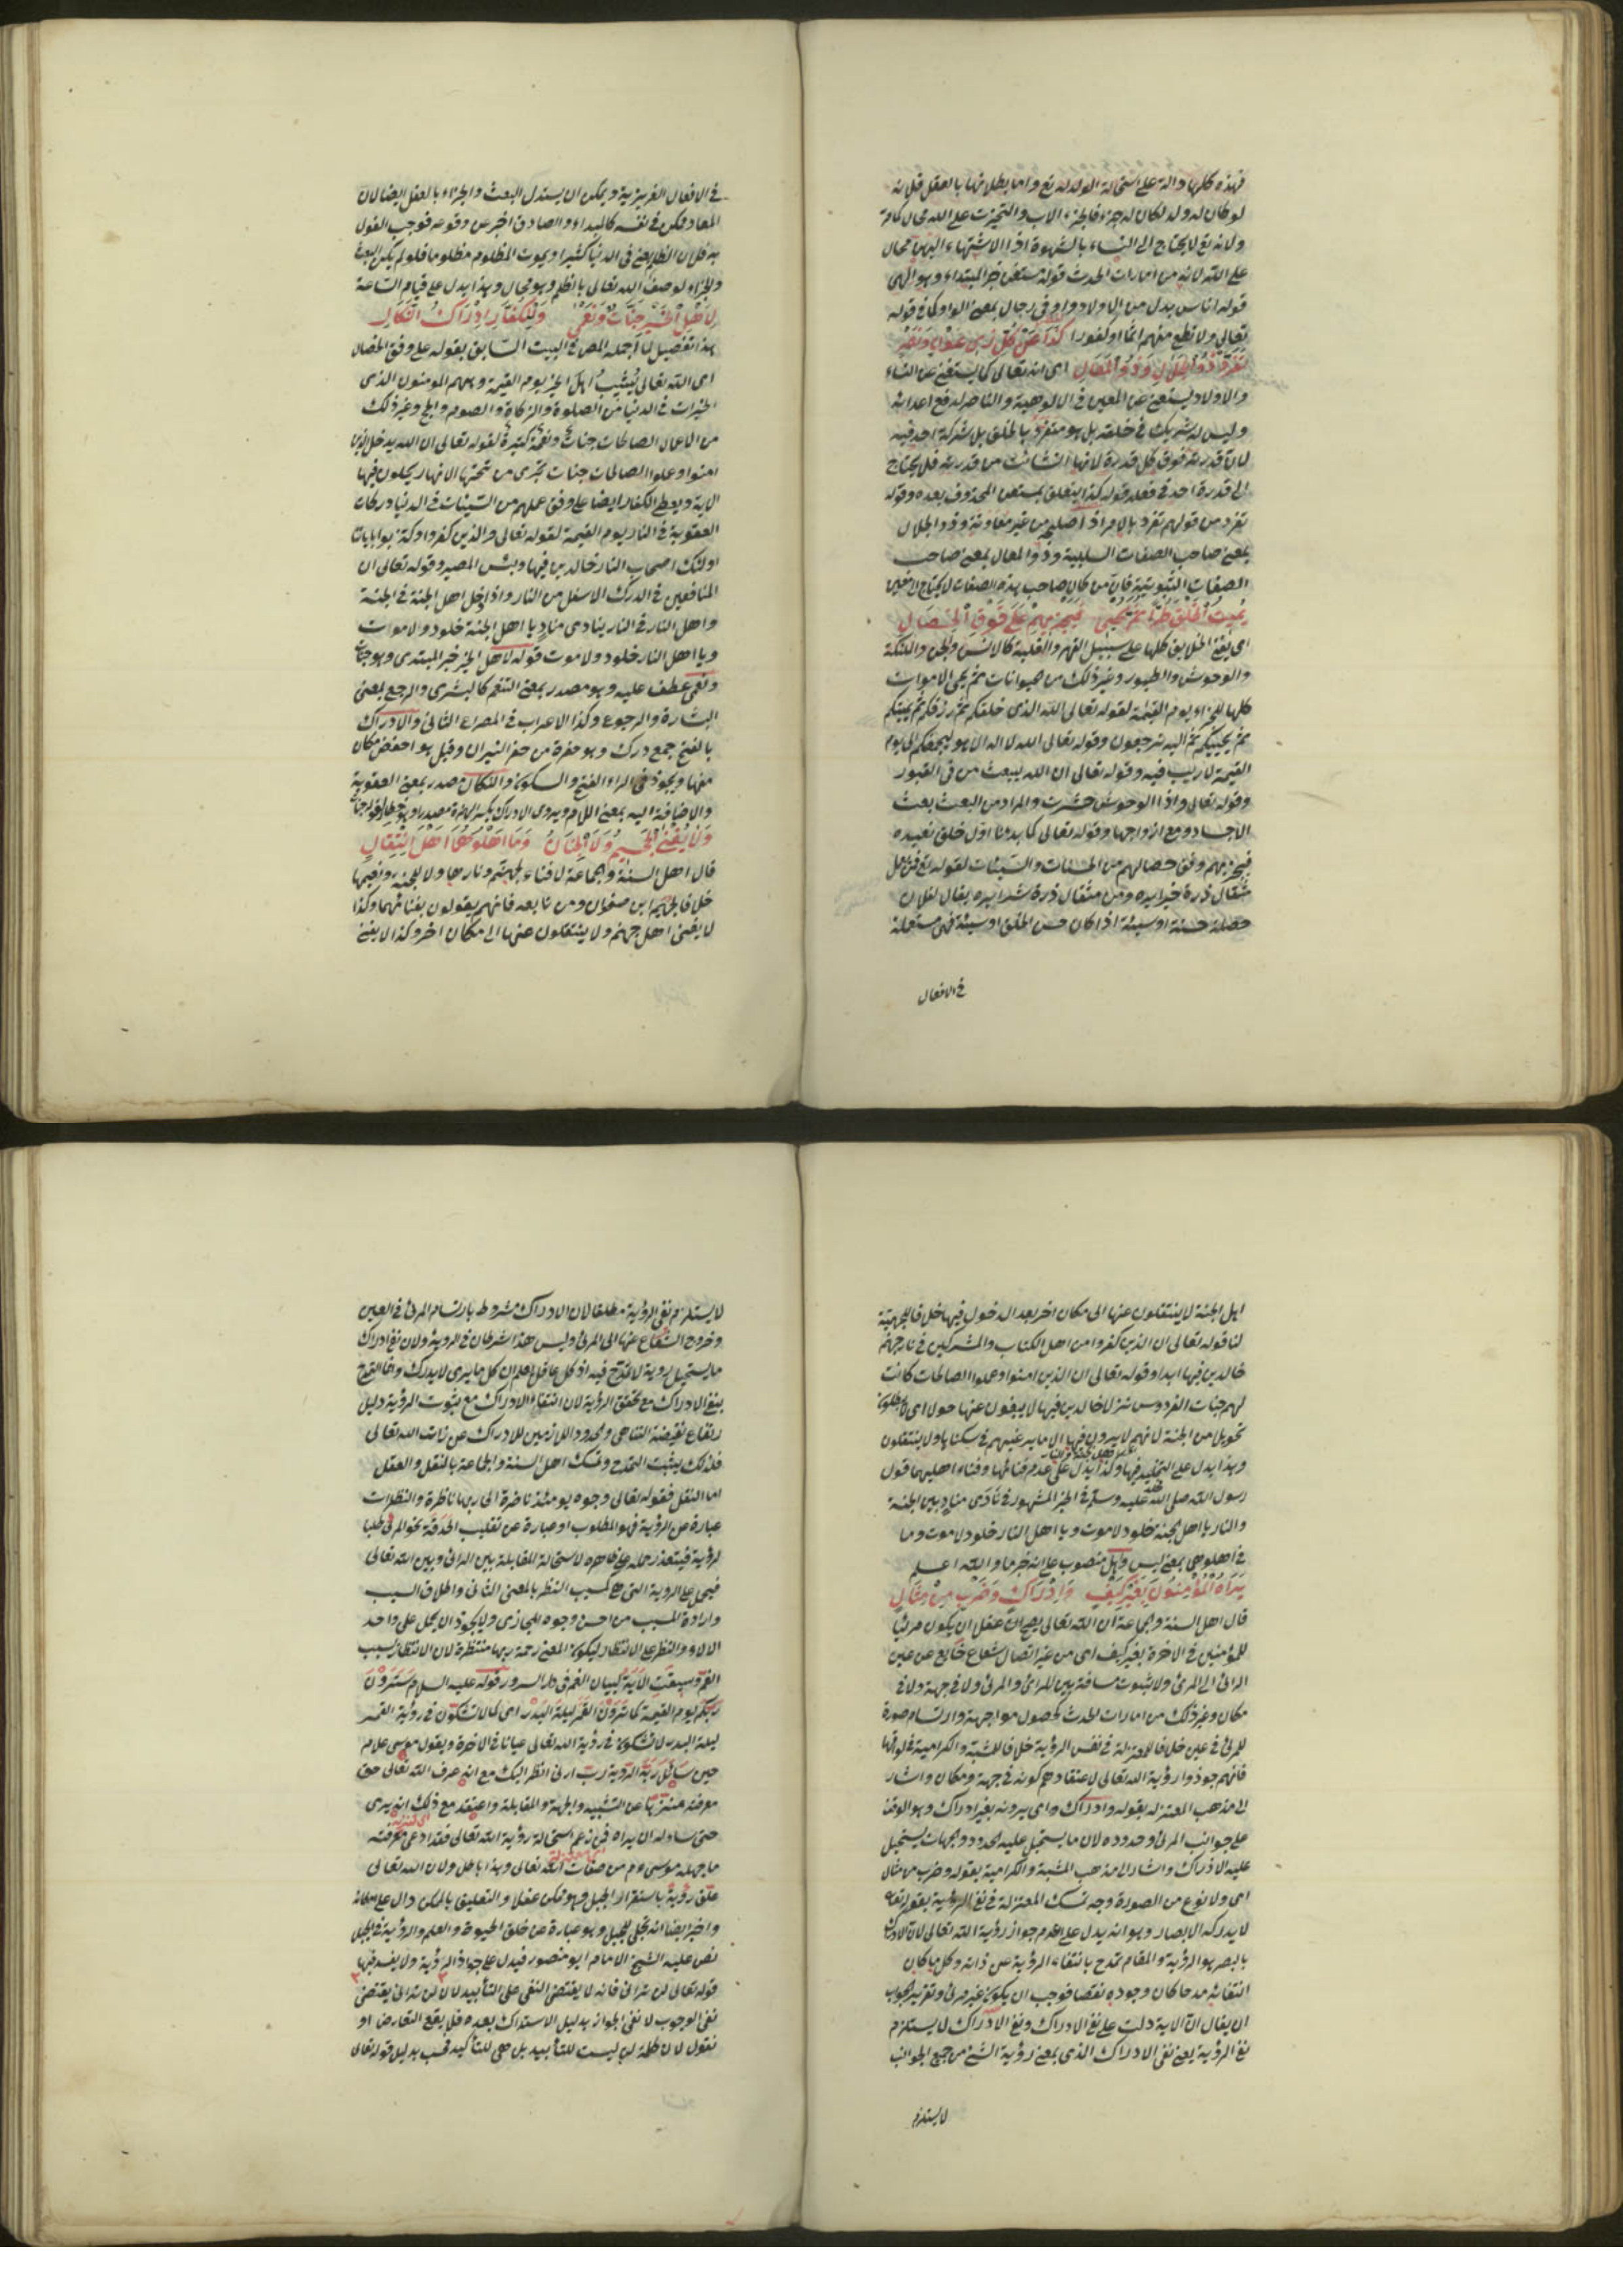 فهذه كلها دالة على استحالة الولد له تع واما بطلانها بالعقل فلانه
لو كان له ولد لكان له جزء فالجزء الاب والتحيزت على الله محال كما مر
ولانه تع لا يحتاج الى النساء بالشهوة اذا الاشتهاء اليهن محال
على الله لانه من امارات الحدث قوله مستغن خبر المبتداء وهو الهى
قوله اناس بدل من الاولاد واو فى رجال بمعنى الواو كما فى قوله
تعالى ولا تطع منهم اثما او كفورا كذا عن كل ذى عون ونصر
تفرد ذو الجلال وذو المعال اى انه تعالى كما يستغنى عن النساء
والاولاد يستغنى عن المعين فى الالوهية والناصر لدفع اعدائه
وليس له شريك فى خلقه بل هو متفرد بالخلق بلا شركة احد فيه
لان قدرته فوق كل قدرة لانها انشائت من قدرته فلا يحتاج
الى قدرة احد فى فعله قوله كذا يتعلق بمستغن المحذوف بعده وقوله
تفرد من قولهم تفرد بالامر اذا صلح من غير معاونة وذو الجلال
بمعنى صاحب الصفات السلبية وذو المعال بمعنى صاحب
الصفات الثبوتية فان من كان صاحب هذه الصفات لا يحتاج الى معين
يميت الخلق طرا ثم يحيى فيجزيهم على وفق الخصال
اى يفنى الخلايق كلها على سبيل القهر والغلبة كالانس والجن والملئكة
والوحوش والطيور وغير ذلك من حيوانات ثم يحيى الاموات
كلها للجزاء يوم القيمة لقوله تعالى الله الذى خلقكم ثم رزقكم ثم يميتكم
ثم يحييكم ثم اليه ترجعون وقوله تعالى الله لا اله الا هو ليجمعنكم الى يوم
القيمة لا ريب فيه وقوله تعالى ان الله يبعث من فى القبور
وقوله تعالى واذا الوحوش حشرت والمراد من البعث بعث
الاجساد ومع ازواجها وقوله تعالى كما بدءنا اول خلق نعيده
فيجزيهم وفق خصالهم من الحسنات والسيئات لقوله تع فمن يعمل
مثقال ذرة خيرا يره ومن مثقال ذرة شرا يره يقال لفلان
خصلة حسنة او سيئة اذا كان حسن الخلق او سيئة فهى مستعملة
فى الافعال
فى الافعال الغريزية ويمكن ان يستدل البعث والجزاء بالعقل ايضا لان
المعاد ممكن فى نفسه كالمبداء والصادق اخبر عن وقوعه فوجب القول
به فلان الظلم يعنى فى الدنيا كثيرا ويموت المظلوم مظلوما فلو لم يكن البعث
والجزاء لوصف الله تعالى بالظلم وهو محال وهذا يدل على قيام الساعة
لاهل الخير جنات ونعمى وللكفار ادراك النكال
هذا تفصيل لما اجمله المص فى البيت السابق بقوله على وفق الخصال
اى الله تعالى يثيب اهل الخير يوم القيمة وهم المومنون الذى
الخيرات فى الدنيا من الصلوة والزكاة والصوم والحج وغير ذلك
من الاعمال الصالحات جنات ونعمة كثيرة لقوله تعالى ان الله يدخل الذين
امنوا وعملوا الصالحات جنات تجرى من تحتها الانهار يحلون فيها
الاية ويعطى الكفار ايضا على وفق عملهم من السيئات فى الدنيا دركات
العقوبة فى النار يوم القيمة لقوله تعالى والذين كفروا وكذبوا باياتنا
اولئك اصحاب النار خالدين فيها وبئس المصير وقوله تعالى ان
المنافقين فى الدرك الاسفل من النار واذا دخل اهل الجنة فى الجنة
واهل النار فى النار ينادى مناد يا اهل الجنة خلود ولا موت
ويا اهل النار خلود ولا موت قوله لاهل الخير خبر المبتدى وهو جنات
ونعمى عطف عليه وهو مصدر بمعنى التنعم كالبشرى والرجع بمعنى
البشارة والرجوع وكذا الاعراب فى المصراع الثانى والادراك
بالفتح جمع درك وهو حفرة من حفر النيران وقيل هو اخفض مكان
منها ويجوز فى الراء الفتح والسكون والنكال مصدر بمعنى العقوبة
والاضافة اليه بمعنى اللام ويروى الادراك بكسر الهمزة مصدرا
ولا يفنى الجحيم ولا الجنان وما اهلوهما اهل انتقال
قال اهل السنة والجماعة لا فناء لجهنم ونارها ولا للجنة ونعيمها
خلافا لجهم ابن صفوان ومن تابعه فانهم يقولون بفنائهما وكذا
لا يفنى اهل جهنم ولا ينتقلون عنها الى مكان اخر وكذا لا يفنى
اهل الجنة لا ينتقلون عنها الى مكان اخر بعد الدخول فيها خلافا للجهمية
لنا قوله تعالى ان الذين كفروا من اهل الكتاب والمشركين فى نار جهنم
خالدين فيها ابدا وقوله تعالى ان الذين امنوا وعملوا الصالحات كانت
لهم جنات الفردوس نزلا خالدين فيها لا يبغون عنها حولا اى لا يطلبون
تحويلا من الجنة لانهم لا يرون فيها الا ما يرغبهم فى سكناها ولا ينتقلون
وهذا يدل على التخليد فيها وكذا يدل على عدم فنائها وفناء اهليهما قول
رسول الله صلى الله عليه وسلم فى الخبر المشهور فى نادى مناد بين الجنة
والنار يا اهل الجنة خلود لا موت ويا اهل النار خلود لا موت وما
فى اهلوهما بمعنى ليس واهل منصوب على انه خبر ما والله اعلم
يراه المؤمنون بغير كيف وادراك وضرب من مثال
قال اهل السنة والجماعة ان الله تعالى يصح ان عقل ان يكون مرئيا
للمؤمنين فى الاخرة بغير كيف اى من غير اتصال شعاع خارج عن عين
الرائى الى المرئى ولا ثبوت مسافة بين للرائى والمرئى ولا فى جهة ولا فى
مكان وغير ذلك من امارات الحدث كحصول مواجهة وارتسام صورة
للمرئى فى عين خلافا للمعتزلة فى نفس الرؤية خلافا للمشبهة والكرامية
فانهم جوذوا رؤية الله تعالى لاعتقادهم كونه فى جهة ومكان واشار
الى مذهب المعتزله بقوله وادراك واى يرونه بغير ادراك وهو الوقف
على جوانب المرئى وحدوده لان ما يستحيل عليه الحدود والجهات يستحيل
عليه الادراك واشار الى مذهب المشبهة والكرامية بقوله وضرب من مثال
اى ولا نوع من الصورة وجه تمسك المعتزلة فى نفى الرؤية بقوله تعالى
لا يدركه الابصار وهو انه يدل على عدم جواز رؤية الله تعالى لان الادراك
بالبصر هو الرؤية والمقام تمدح بانتفاء الرؤية عن ذاته وكل ما كان
انتفائه مدحا كان وجوده نقصا فوجب ان يكون غير مرئى وتقرير الجواب
ان يقال ان الاية دلت على نفى الادراك ونفى الادراك لا يستلزم
نفى الرؤية يعنى نفى الادراك الذى بمعنى رؤية الشئ من جميع الجوانب
لا يستلزم
لا يستلزم نفى الرؤية مطلقا لان الادراك مشروط بارتسام المرئى فى العين
وخروج الشعاع عنها الى المرئى وليس هذا شرطان فى الرؤية ولان نفى ادراك
ما يستحيل روية لا تمدح فيه اذ كل عاقل يعلم ان كل ما يرى لا يدرك وانما التمدح
بنفى الادراك مع تحقق الرؤية لان انتفاء الادراك مع ثبوت الرؤية دليل
ارتفاع نقيضة التناهى والحدود اللازمين للادراك عن ذات الله تعالى
فلذلك يثبت التمدح وتمسك اهل السنة والجماعة بالنقل والعقل
اما النقل فقوله تعالى وجوه يومئذ ناضرة الى ربها ناظرة والنظرات
عبارة عن الرؤية فهو المطلوب او عبارة عن تقليب الحدقة نحو المرئى طلبا
لرؤية فيتعذر حمله على ظاهره لاستحالة المقابلة بين الرائى وبين الله تعالى
فيحمل على الروية التى هى كمسبب النظر بالمعنى الثانى واطلاق السبب
وارادة المسبب من احسن وجوه المجازى ولا يجوز ان يحمل على واحد
الالاء والنظر على الانتظار ليكون المعنى رحمة ربها منتظرة لان الانتظار سبب
الغم وسيقت الاية لبيان الغم فى دار السرور قوله عليه السلام سترون
ربكم يوم القيمة كما ترون القمر ليلة البدر اى كما لا تشكون فى رؤية القمر
ليلة البدر لا تشكون فى رؤية الله تعالى عيانا فى الاخرة وبقول موسى علام
حين سائل ربه الروية رب ارنى انظر اليك مع انه عرف الله تعالى حق
معرفته منزها عن التشبيه والجهة والمقابلة واعتقد مع ذلك انه يرى
حتى ساله ان يراه فمن زعم استحالة رؤية الله تعالى فقد ادعى معرفته
ما جهله موسى ءم من صفات الله تعالى وهذا باطل ولان الله تعالى
علق رؤية باستقرار الجبل وهو ممكن عقلا والتعليق بالممكن دال على امكانه
واخبر ايضا انه تجلى للجبل وهو عبارة عن خلق الحيوة والعلم والرؤية فى الجبل
نص عليه الشيخ الامام ابو منصور فيدل على جواذ الرؤية ولا يفسد فيها
قوله تعالى لن ترانى فانه لا يقتضى النفى على التأبيد لان لن ترانى يقتضى
نفى الوجوب لا نفى الجواز بدليل الاستدراك بعده فلا يقع التعارض او
نقول لان كلمة لن ليست للتأبيد بل هى للتأكيد فحسب بدليل قوله تعالى